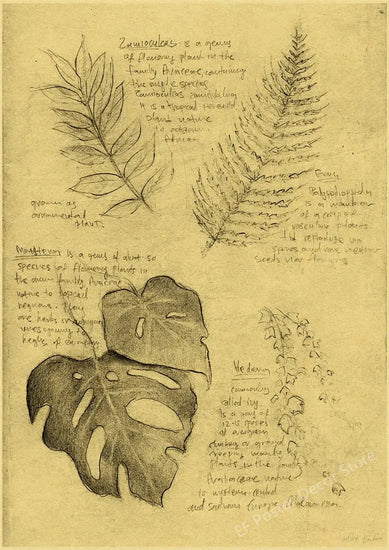 Zamioculcas is a genus
of flowering plant in the
family Araceae, containing
the single species
Zamioculcas
It is a tropical
plant native
to eastern
Africa
grown as
ornamental
plant.
Fern
Polypodiopsida
is a member
of a group
vascular plants
reproduce via
spores and have neither
seeds nor flowers
Monstera is a genus of about 50
species of flowering plants in
the arum family, Araceae
native to tropical
regions. They
are herbs or
vines growing to
heights of
Hedera
commonly
called ivy
Is a genus of
12-15 species
of
climbing or ground
creeping woody
plants in the family
Araliaceae native
to western, central
and southern Europe, Macaronesia
EF Poster Decor Store